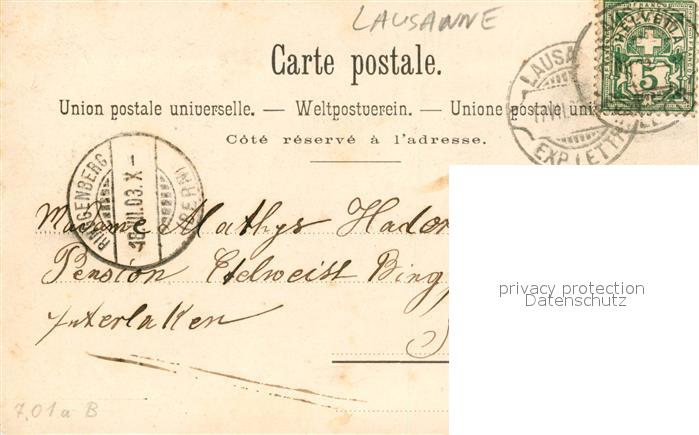 LAUSANNE
Carte postale.
Union postale universelle. — Weltpostverein. — Unione postale unive
Côté réservé à l'adresse.
HELVETIA
5
LAUSA
EXP. LETTR
RINGGENBERG
18.VII.03.X–
(BERN)
Madame Mathys Hador
Pension Edelweiss Ring
Interlaken
privacy protection
Datenschutz
7,01 a B